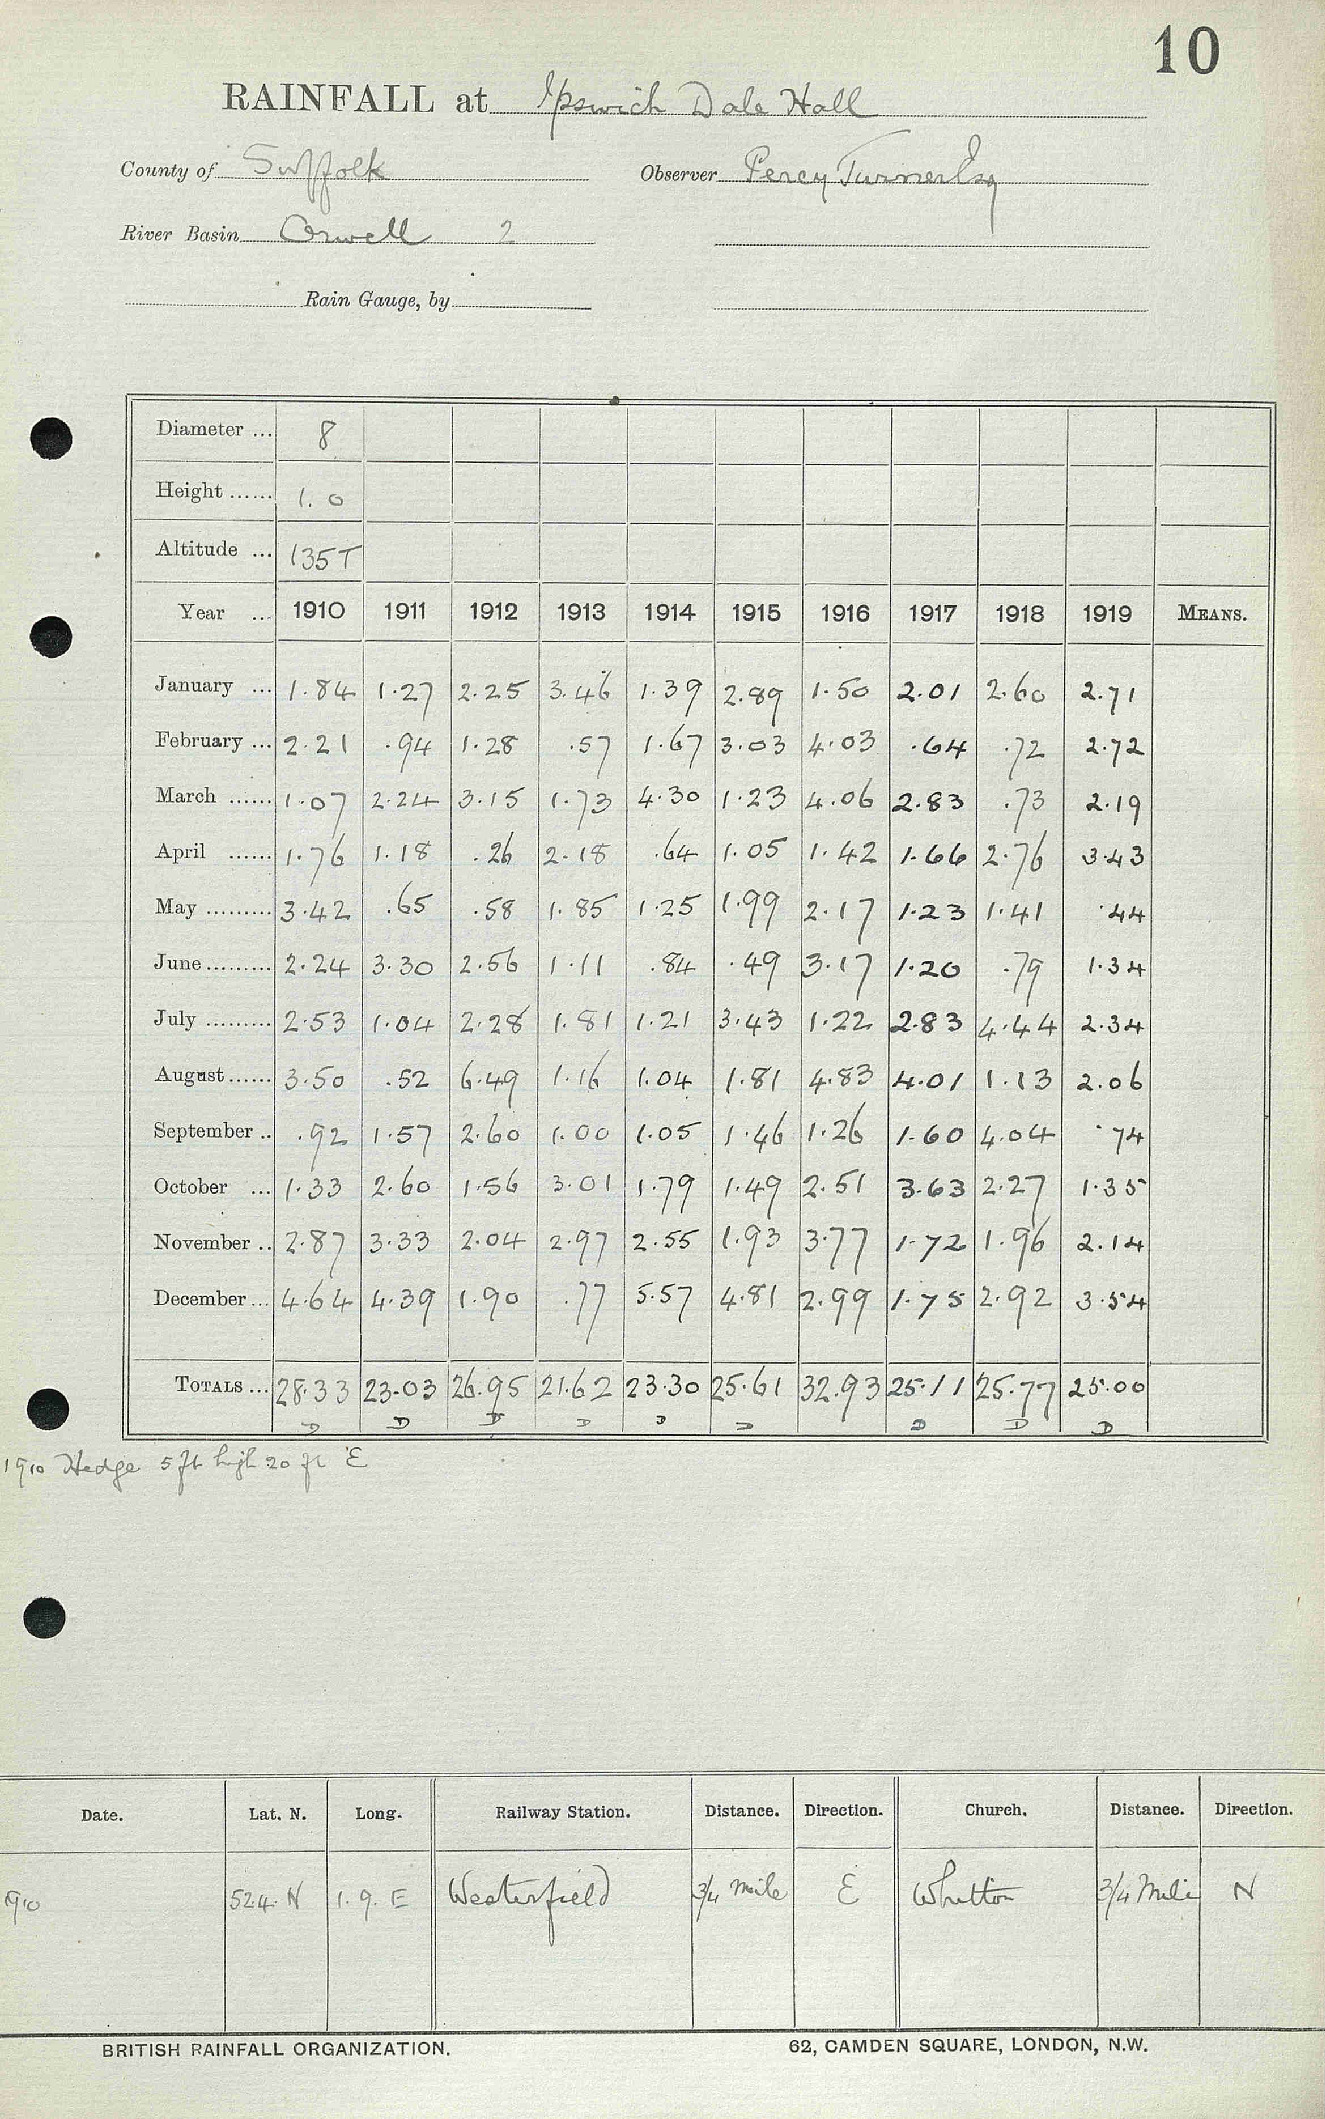 10
RAINFALL at Ipswich Dale Hall
County of Suffolk Observer Percy Turner Esq
River Basin Orwell 2
Rain Gauge, by
Diameter ... 8
Height ...... 1.0
Altitude ... 135T
Year ... 1910 1911 1912 1913 1914 1915 1916 1917 1918 1919 MEANS.
January ... 1.84 1.27 2.25 3.46 1.39 2.89 1.50 2.01 2.60 2.71
February ... 2.21 .94 1.28 .57 1.67 3.03 4.03 .64 .72 2.72
March ...... 1.07 2.24 3.15 1.73 4.30 1.23 4.06 2.83 .73 2.19
April ...... 1.76 1.18 .26 2.18 .64 1.05 1.42 1.66 2.76 3.43
May ......... 3.42 .65 .58 1.85 1.25 1.99 2.17 1.23 1.41 .44
June ......... 2.24 3.30 2.56 1.11 .84 .49 3.17 1.20 .79 1.34
July ......... 2.53 1.04 2.28 1.81 1.21 3.43 1.22 2.83 4.44 2.34
August ...... 3.50 .52 6.49 1.16 1.04 1.81 4.83 4.01 1.13 2.06
September .. .92 1.57 2.60 1.00 1.05 1.46 1.26 1.60 4.04 .74
October ... 1.33 2.60 1.56 3.01 1.79 1.49 2.51 3.63 2.27 1.35
November .. 2.87 3.33 2.04 2.97 2.55 1.93 3.77 1.72 1.96 2.14
December ... 4.64 4.39 1.90 .77 5.57 4.81 2.99 1.75 2.92 3.54
TOTALS ... 28.33 23.03 26.95 21.62 23.30 25.61 32.93 25.11 25.77 25.00
D D D D D D D D D
1910 Hedge 5 ft high 20 ft E
Date. Lat. N. Long. Railway Station. Distance. Direction. Church. Distance. Direction.
1910 52.4. N 1. 9. E Westerfield 3/4 mile E Whitton 3/4 Mile N
BRITISH RAINFALL ORGANIZATION. 62, CAMDEN SQUARE, LONDON, N.W.